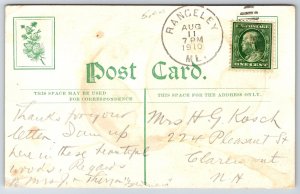 RANGELEY
AUG
11
7 PM
1910
ME.
Post Card.
THIS SPACE MAY BE USED
FOR CORRESPONDENCE
THIS SPACE FOR ADDRESS ONLY.
Thanks for your
letter. I am up
here in these beautiful
woods. Regards
to
Mrs H G Kosch
224 Pleasant St
Claremont
N H
ONE CENT